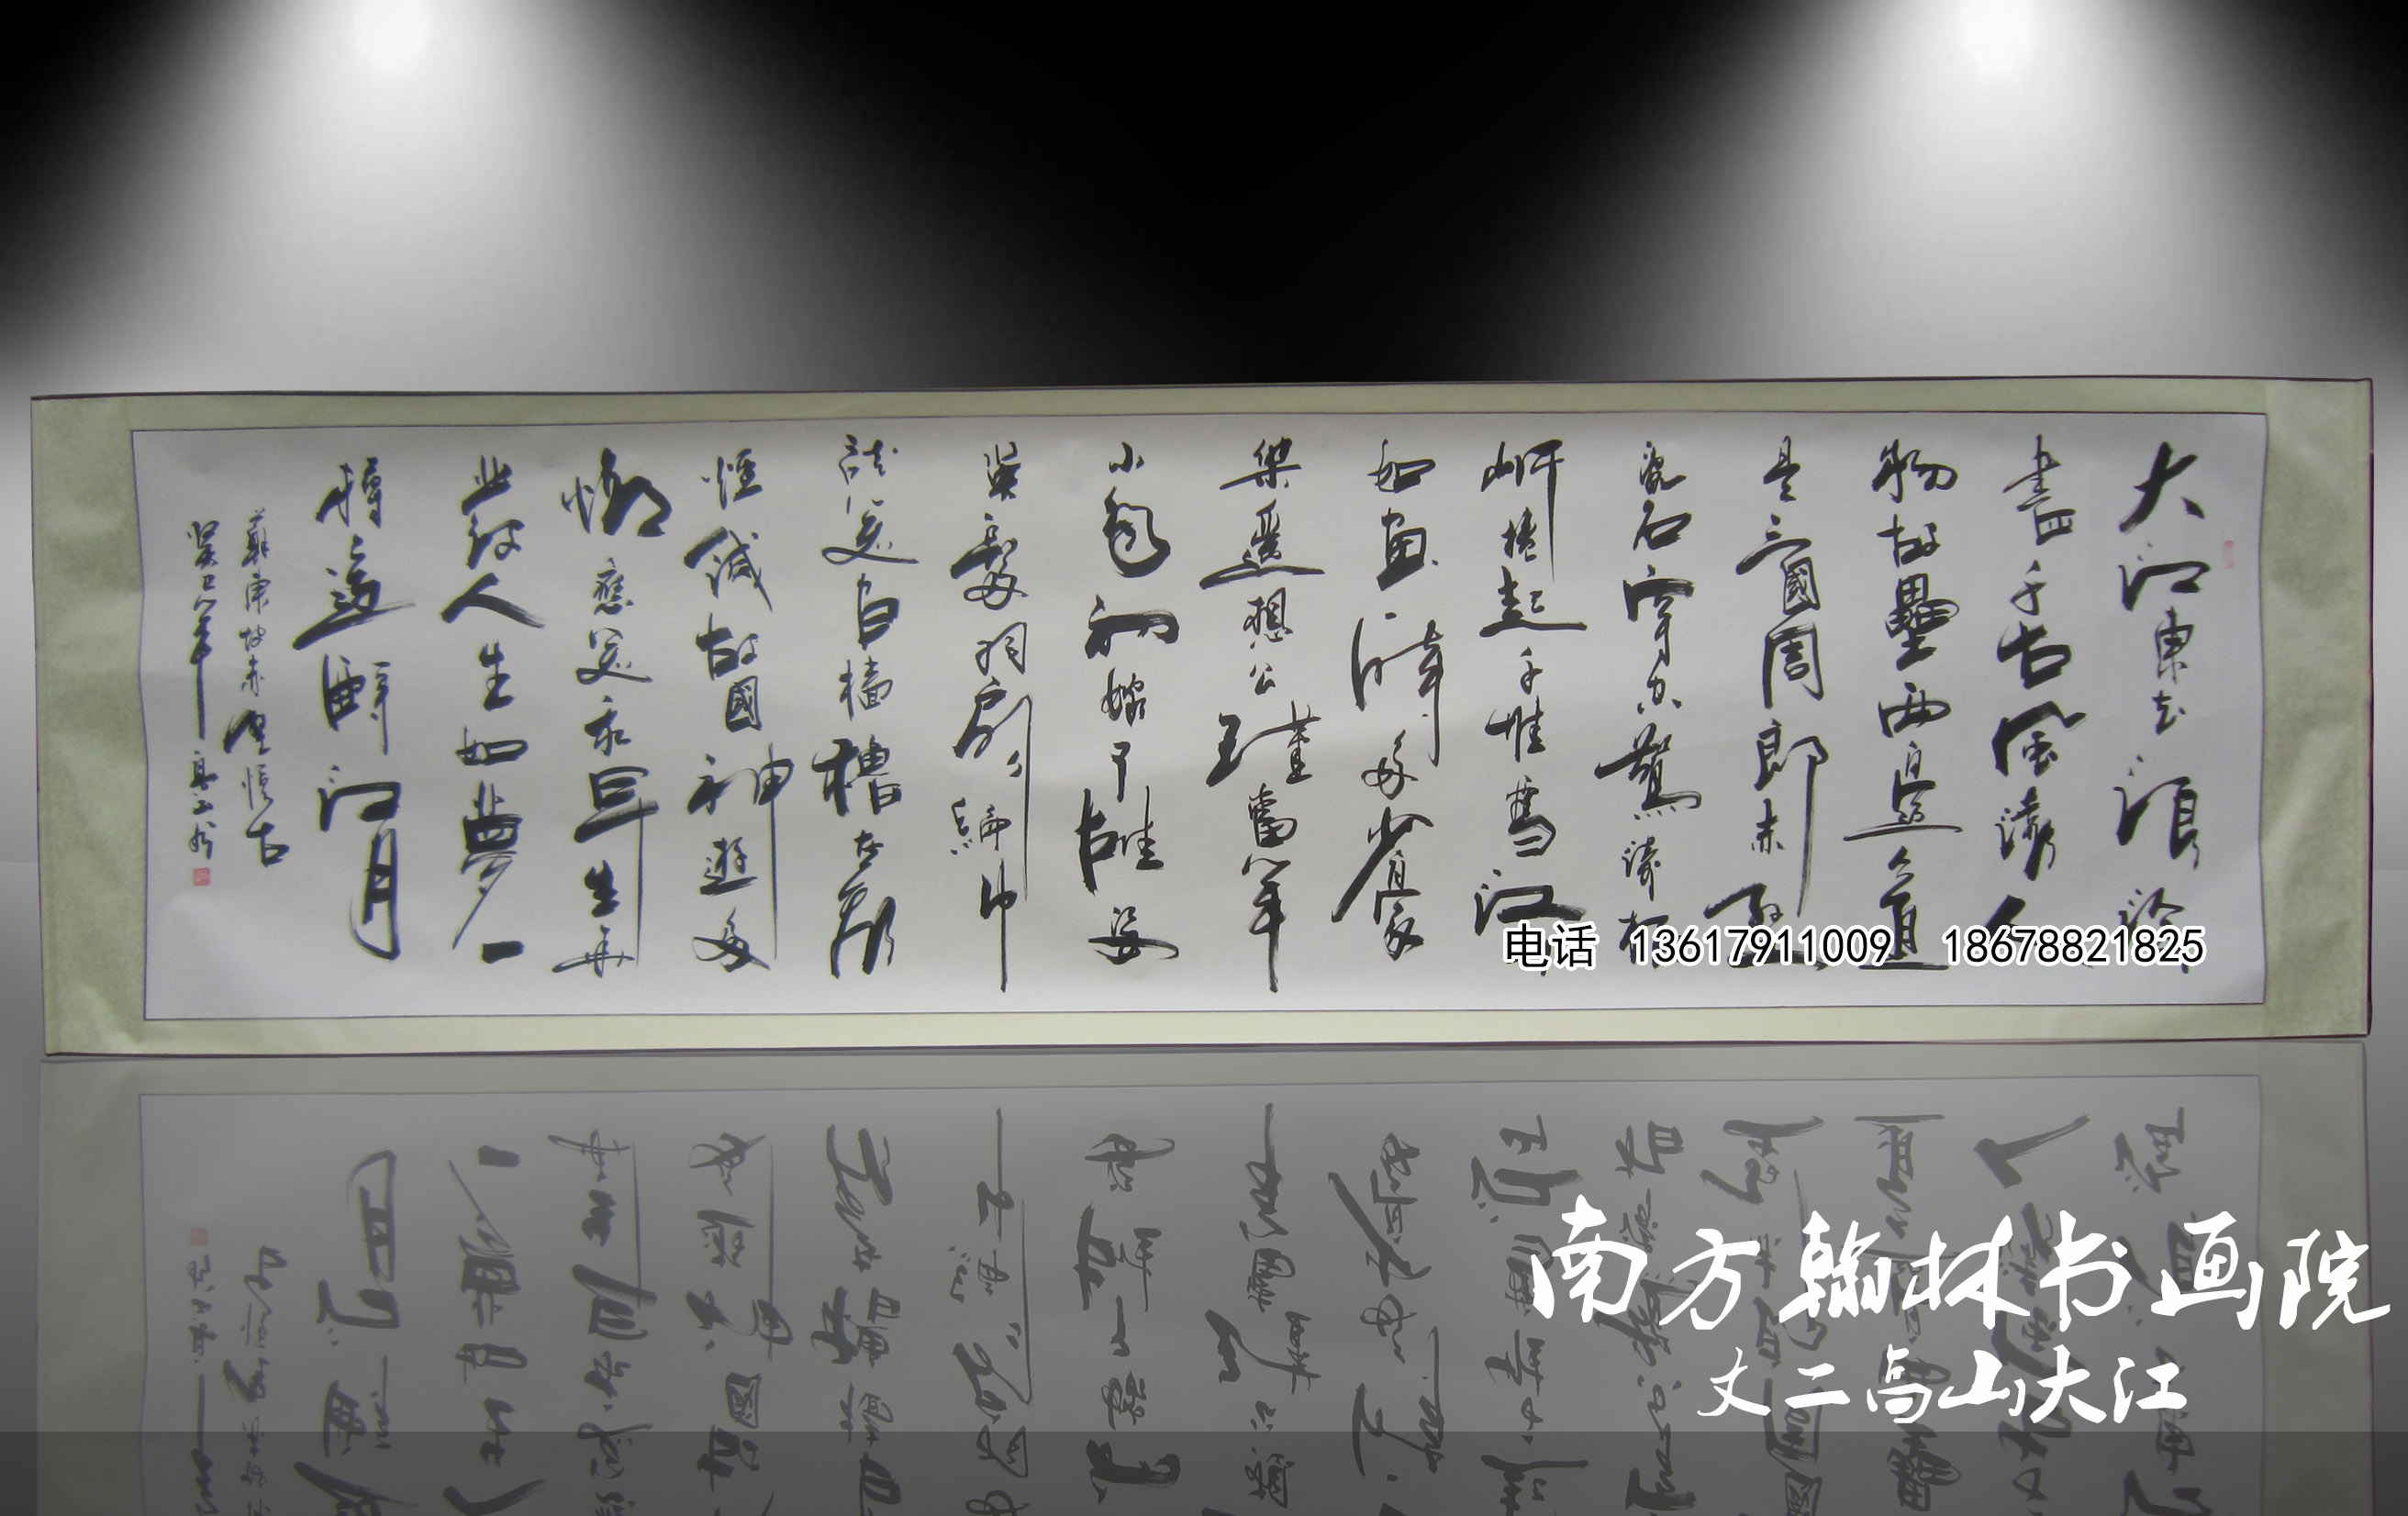 大江東去浪淘
盡千古風流人
物故壘西邊人道
是三國周郎赤壁
亂石穿空驚濤拍
岸捲起千堆雪江
如畫一時多少豪
傑遙想公瑾當年
小喬初嫁了雄姿
英發羽扇綸巾
談笑間檣櫓灰飛
煙滅故國神遊多
情應笑我早生華
髮人生如夢一
樽還酹江月
蘇東坡赤壁懷古
癸巳年
电话 13617911009 18678821825
南方翰林书画院
文二高山大江